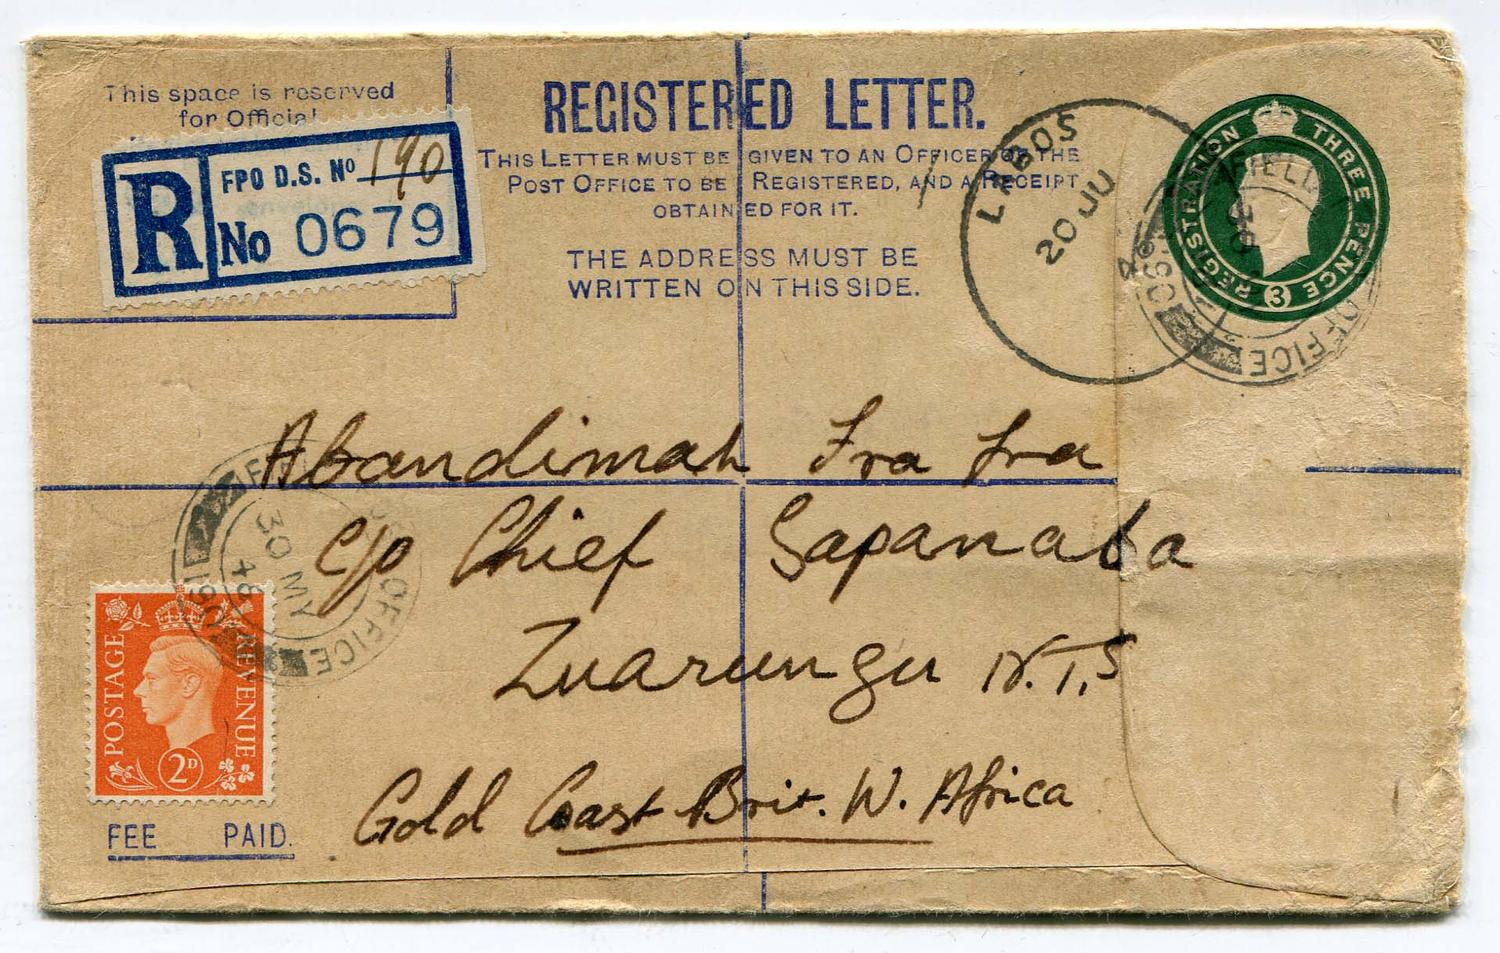 This space is reserved
for Official
R
FPO D.S. No 190
No 0679
REGISTERED LETTER.
THIS LETTER MUST BE GIVEN TO AN OFFICER OF THE
POST OFFICE TO BE REGISTERED, AND A RECEIPT
OBTAINED FOR IT.
THE ADDRESS MUST BE
WRITTEN ON THIS SIDE.
LABOS
20 JU
REGISTRATION THREE PENCE
3
FIELD OFFICE
Abandimah Fra Fra
c/o Chief Sapanaba
Zuarungu N.T.S
Gold Coast Brit. W. Africa
OFFICE
30 MY
46
190
POSTAGE REVENUE
2D
FEE PAID.